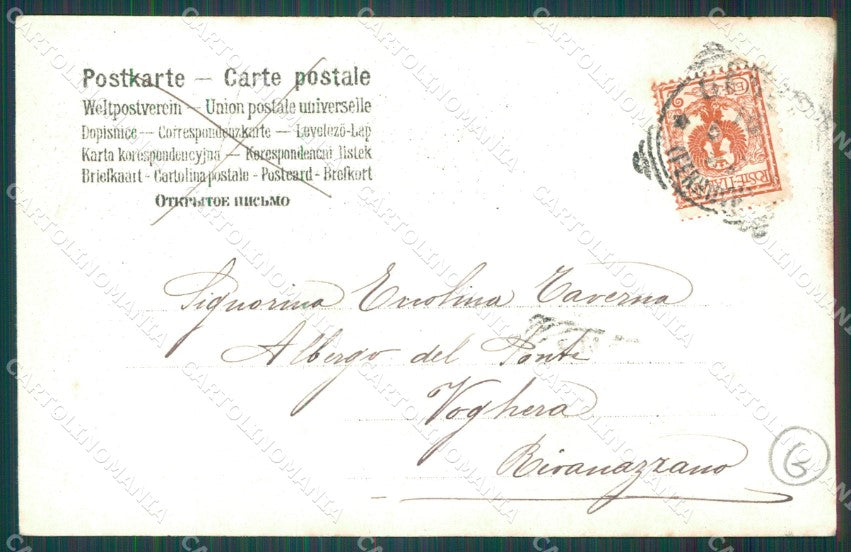 Postkarte — Carte postale
Weltpostverein — Union postale universelle
Dopisnice — Correspondenzkarte — Levelező-Lap
Karta korespondencyjna — Korespondenční lístek
Briefkaart - Cartolina postale - Postcard - Brefkort
Открытое письмо
Signorina Ercolina Taverna
Albergo del Ponte
Voghera
Rivanazzano
G
CARTOLINOMANIA